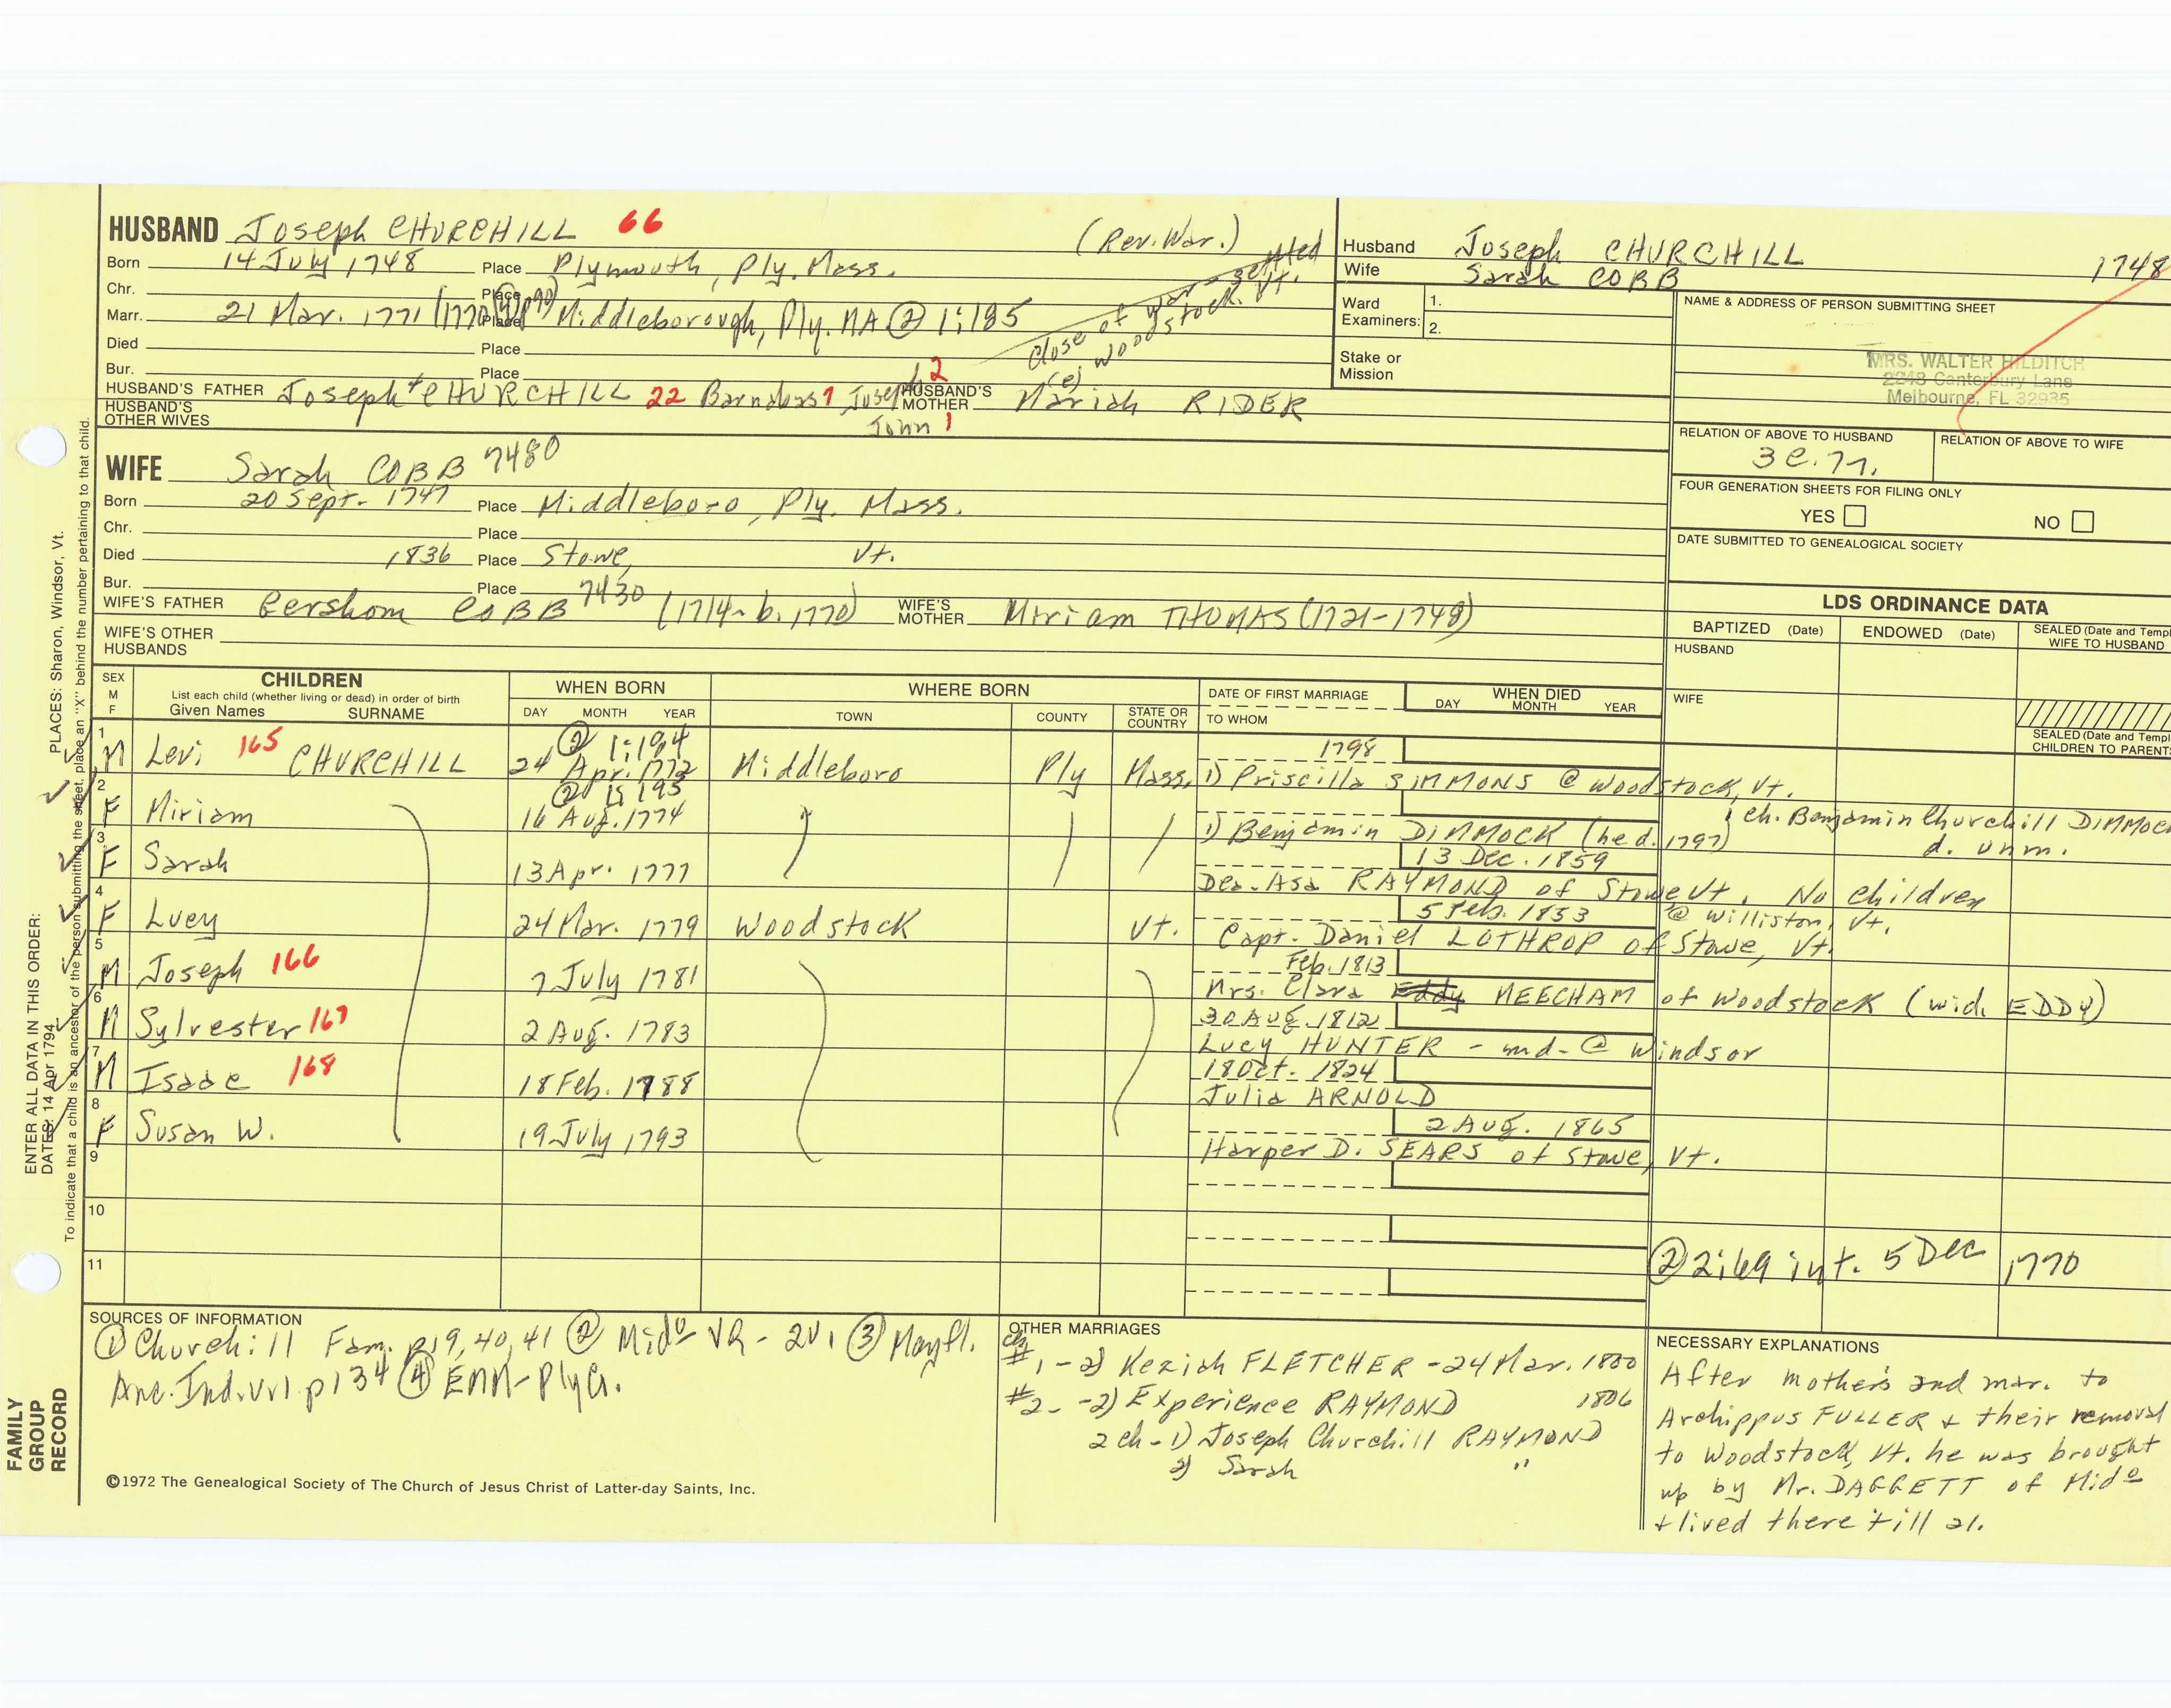 HUSBAND Joseph CHURCHILL 66 (Rev. War.)
Born 14 July 1748 Place Plymouth, Ply. Mass.
Chr. Place
Marr. 21 Mar. 1771 Place Middleborough, Ply. MA ② 1:185
close of war settled
Woodstock. Vt.
Died Place
Bur. Place
HUSBAND'S FATHER Joseph 4 CHURCHILL 22 Barnabas 7 Joseph 2 John 1 HUSBAND'S MOTHER Mariah (e) RIDER
HUSBAND'S OTHER WIVES
WIFE Sarah COBB 7480
Born 20 Sept. 1747 Place Middleboro, Ply. Mass.
Chr. Place
Died 1836 Place Stowe, Vt.
Bur. Place
WIFE'S FATHER Gershom COBB 7430 (1714-b. 1770) WIFE'S MOTHER Miriam THOMAS (1721-1748)
WIFE'S OTHER HUSBANDS
Husband Joseph CHURCHILL 1748
Wife Sarah COBB
Ward Examiners: 1.
2.
Stake or Mission
NAME & ADDRESS OF PERSON SUBMITTING SHEET
MRS. WALTER HILDITCH
2248 Canterbury Lane
Melbourne, FL 32935
RELATION OF ABOVE TO HUSBAND RELATION OF ABOVE TO WIFE
FOUR GENERATION SHEETS FOR FILING ONLY
YES NO
DATE SUBMITTED TO GENEALOGICAL SOCIETY
LDS ORDINANCE DATA
BAPTIZED (Date) ENDOWED (Date) SEALED (Date and Templ
WIFE TO HUSBAND
HUSBAND
WIFE
SEALED (Date and Templ
CHILDREN TO PARENT
SEX M F CHILDREN
List each child (whether living or dead) in order of birth
Given Names SURNAME
WHEN BORN DAY MONTH YEAR
WHERE BORN TOWN COUNTY STATE OR COUNTRY
DATE OF FIRST MARRIAGE
TO WHOM
WHEN DIED DAY MONTH YEAR
② 1:194 1798
1 M Levi 165 CHURCHILL 24 Apr. 1772 Middleboro Ply Mass. 1) Priscilla SIMMONS @ Woodstock, Vt.
② 1:195
2 F Miriam 16 Aug. 1774 1) Benjamin DIMMOCK (he d. 1797) 1 ch. Benjamin Churchill DIMMOCK
d. unm.
13 Dec. 1859
3 F Sarah 13 Apr. 1777 Dea. Asa RAYMOND of Stowe Vt. No Children
5 Feb. 1853 @ Williston, Vt.
4 F Lucy 24 Mar. 1779 Woodstock Vt. Capt. Daniel LOTHROP of Stowe, Vt.
Feb. 1813
5 M Joseph 166 7 July 1781 Mrs. Clara Eddy MEECHAM of Woodstock (wid. EDDY)
30 Aug. 1812
6 M Sylvester 167 2 Aug. 1783 Lucy HUNTER - md. @ Windsor
18 Oct. 1824
7 M Isaac 168 18 Feb. 1788 Julia ARNOLD
2 Aug. 1865
8 F Susan W. 19 July 1793 Harper D. SEARS of Stowe, Vt.
9
10
11
② 2:69 int. 5 Dec 1770
SOURCES OF INFORMATION
① Churchill Fam. p19, 40, 41 ② Mido VR - 2v. ③ Mayfl.
Anc. Ind. v1 p134 ④ ENM-PlyCl.
OTHER MARRIAGES
ch
#1 - 2) Keziah FLETCHER - 24 Mar. 1800
#2 - 2) Experience RAYMOND 1806
2 ch - 1) Joseph Churchill RAYMOND
2) Sarah "
NECESSARY EXPLANATIONS
After mothers 2nd mar. to
Archippus FULLER + their removal
to Woodstock, Vt. he was brought
up by Mr. DAGGETT of Mido
+ lived there till 21.
©1972 The Genealogical Society of The Church of Jesus Christ of Latter-day Saints, Inc.
FAMILY GROUP RECORD
ENTER ALL DATA IN THIS ORDER:
DATES: 14 Apr 1794
PLACES: Sharon, Windsor, Vt.
To indicate that a child is an ancestor of the person submitting the sheet, place an "X" behind the number pertaining to that child.